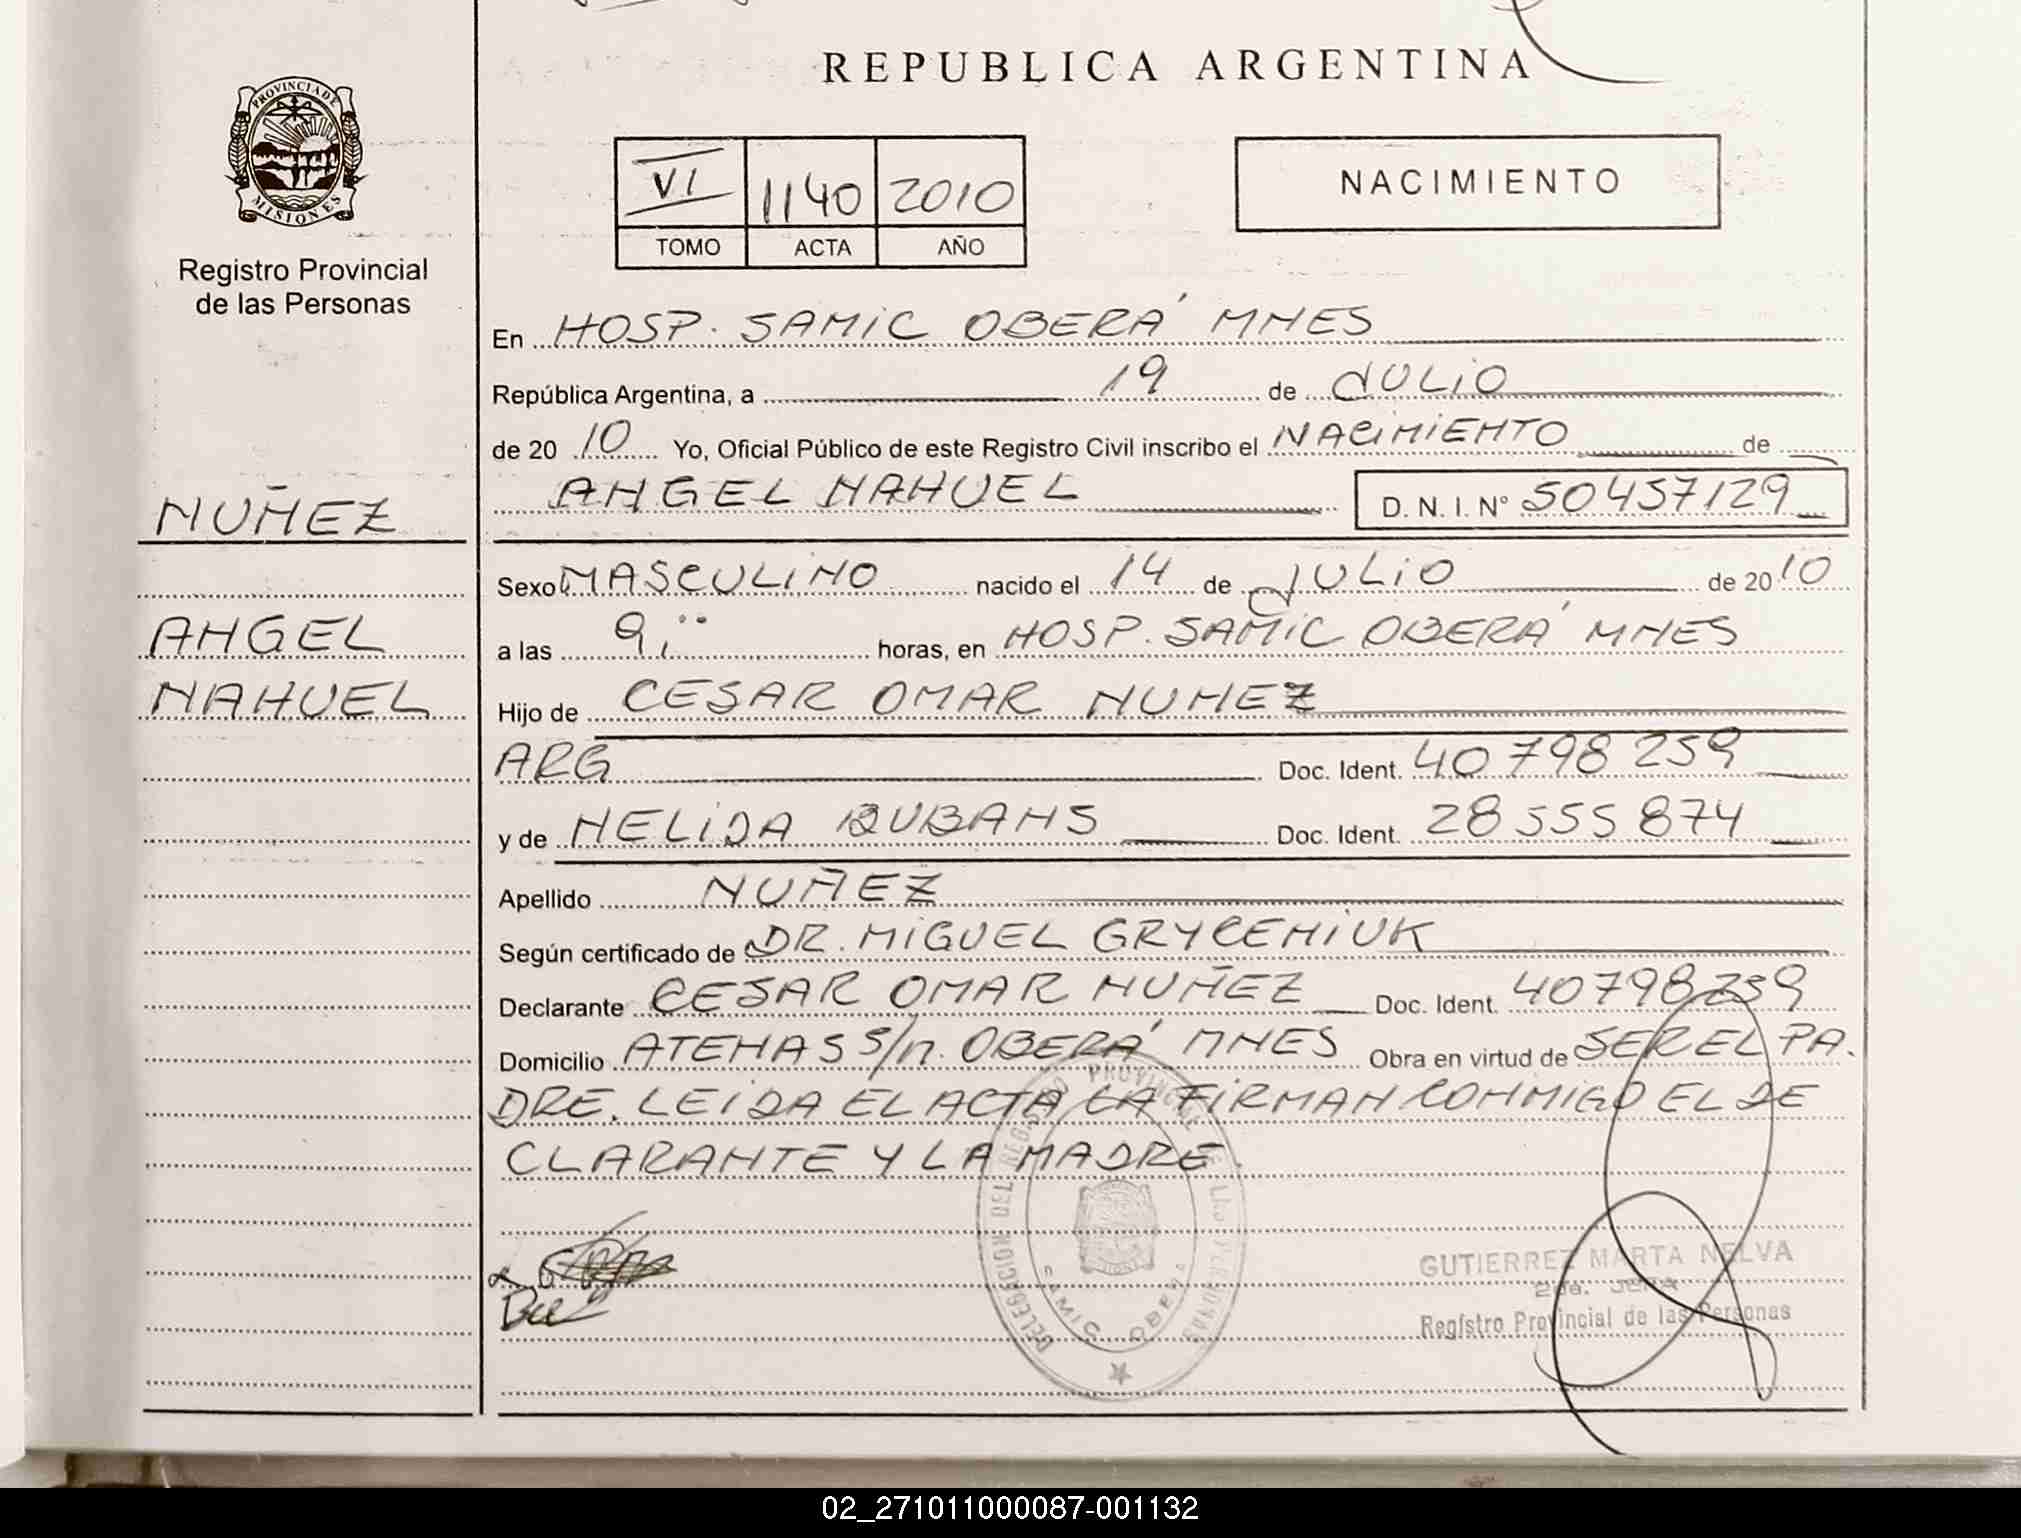 REPUBLICA ARGENTINA
PROVINCIA DE
MISIONES
Registro Provincial
de las Personas
VI 1140 2010
TOMO ACTA AÑO
NACIMIENTO
En HOSP. SAMIC OBERÁ MNES
República Argentina, a 19 de JULIO
de 20 10 Yo, Oficial Público de este Registro Civil inscribo el NACIMIENTO de
ANGEL NAHUEL D. N. I. Nº 50457129
NUÑEZ
ANGEL
NAHUEL
Sexo MASCULINO nacido el 14 de JULIO de 20 10
a las 9 horas, en HOSP. SAMIC OBERÁ MNES
Hijo de CESAR OMAR NUNEZ
ARG Doc. Ident. 40 798 259
y de NELIDA BUBANS Doc. Ident. 28 555 874
Apellido NUÑEZ
Según certificado de DR. MIGUEL GRYCENIUK
Declarante CESAR OMAR NUÑEZ Doc. Ident. 40798259
Domicilio ATENAS S/n. OBERÁ MNES Obra en virtud de SER EL PA.
DRE. LEIDA EL ACTA LA FIRMAN CONMIGO EL DE
CLARANTE Y LA MADRE.
DELEGACION DEL REGISTRO PROVINCIAL DE LAS PERSONAS
SAMIC OBERA
GUTIERREZ MARTA NELVA
2da. JEFA
Registro Provincial de las Personas
02_271011000087-001132